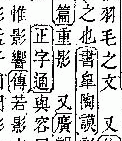 羽毛之文 又
之也書皋陶謨
篇重影 又廣
正字通與容
惟影響傳若影